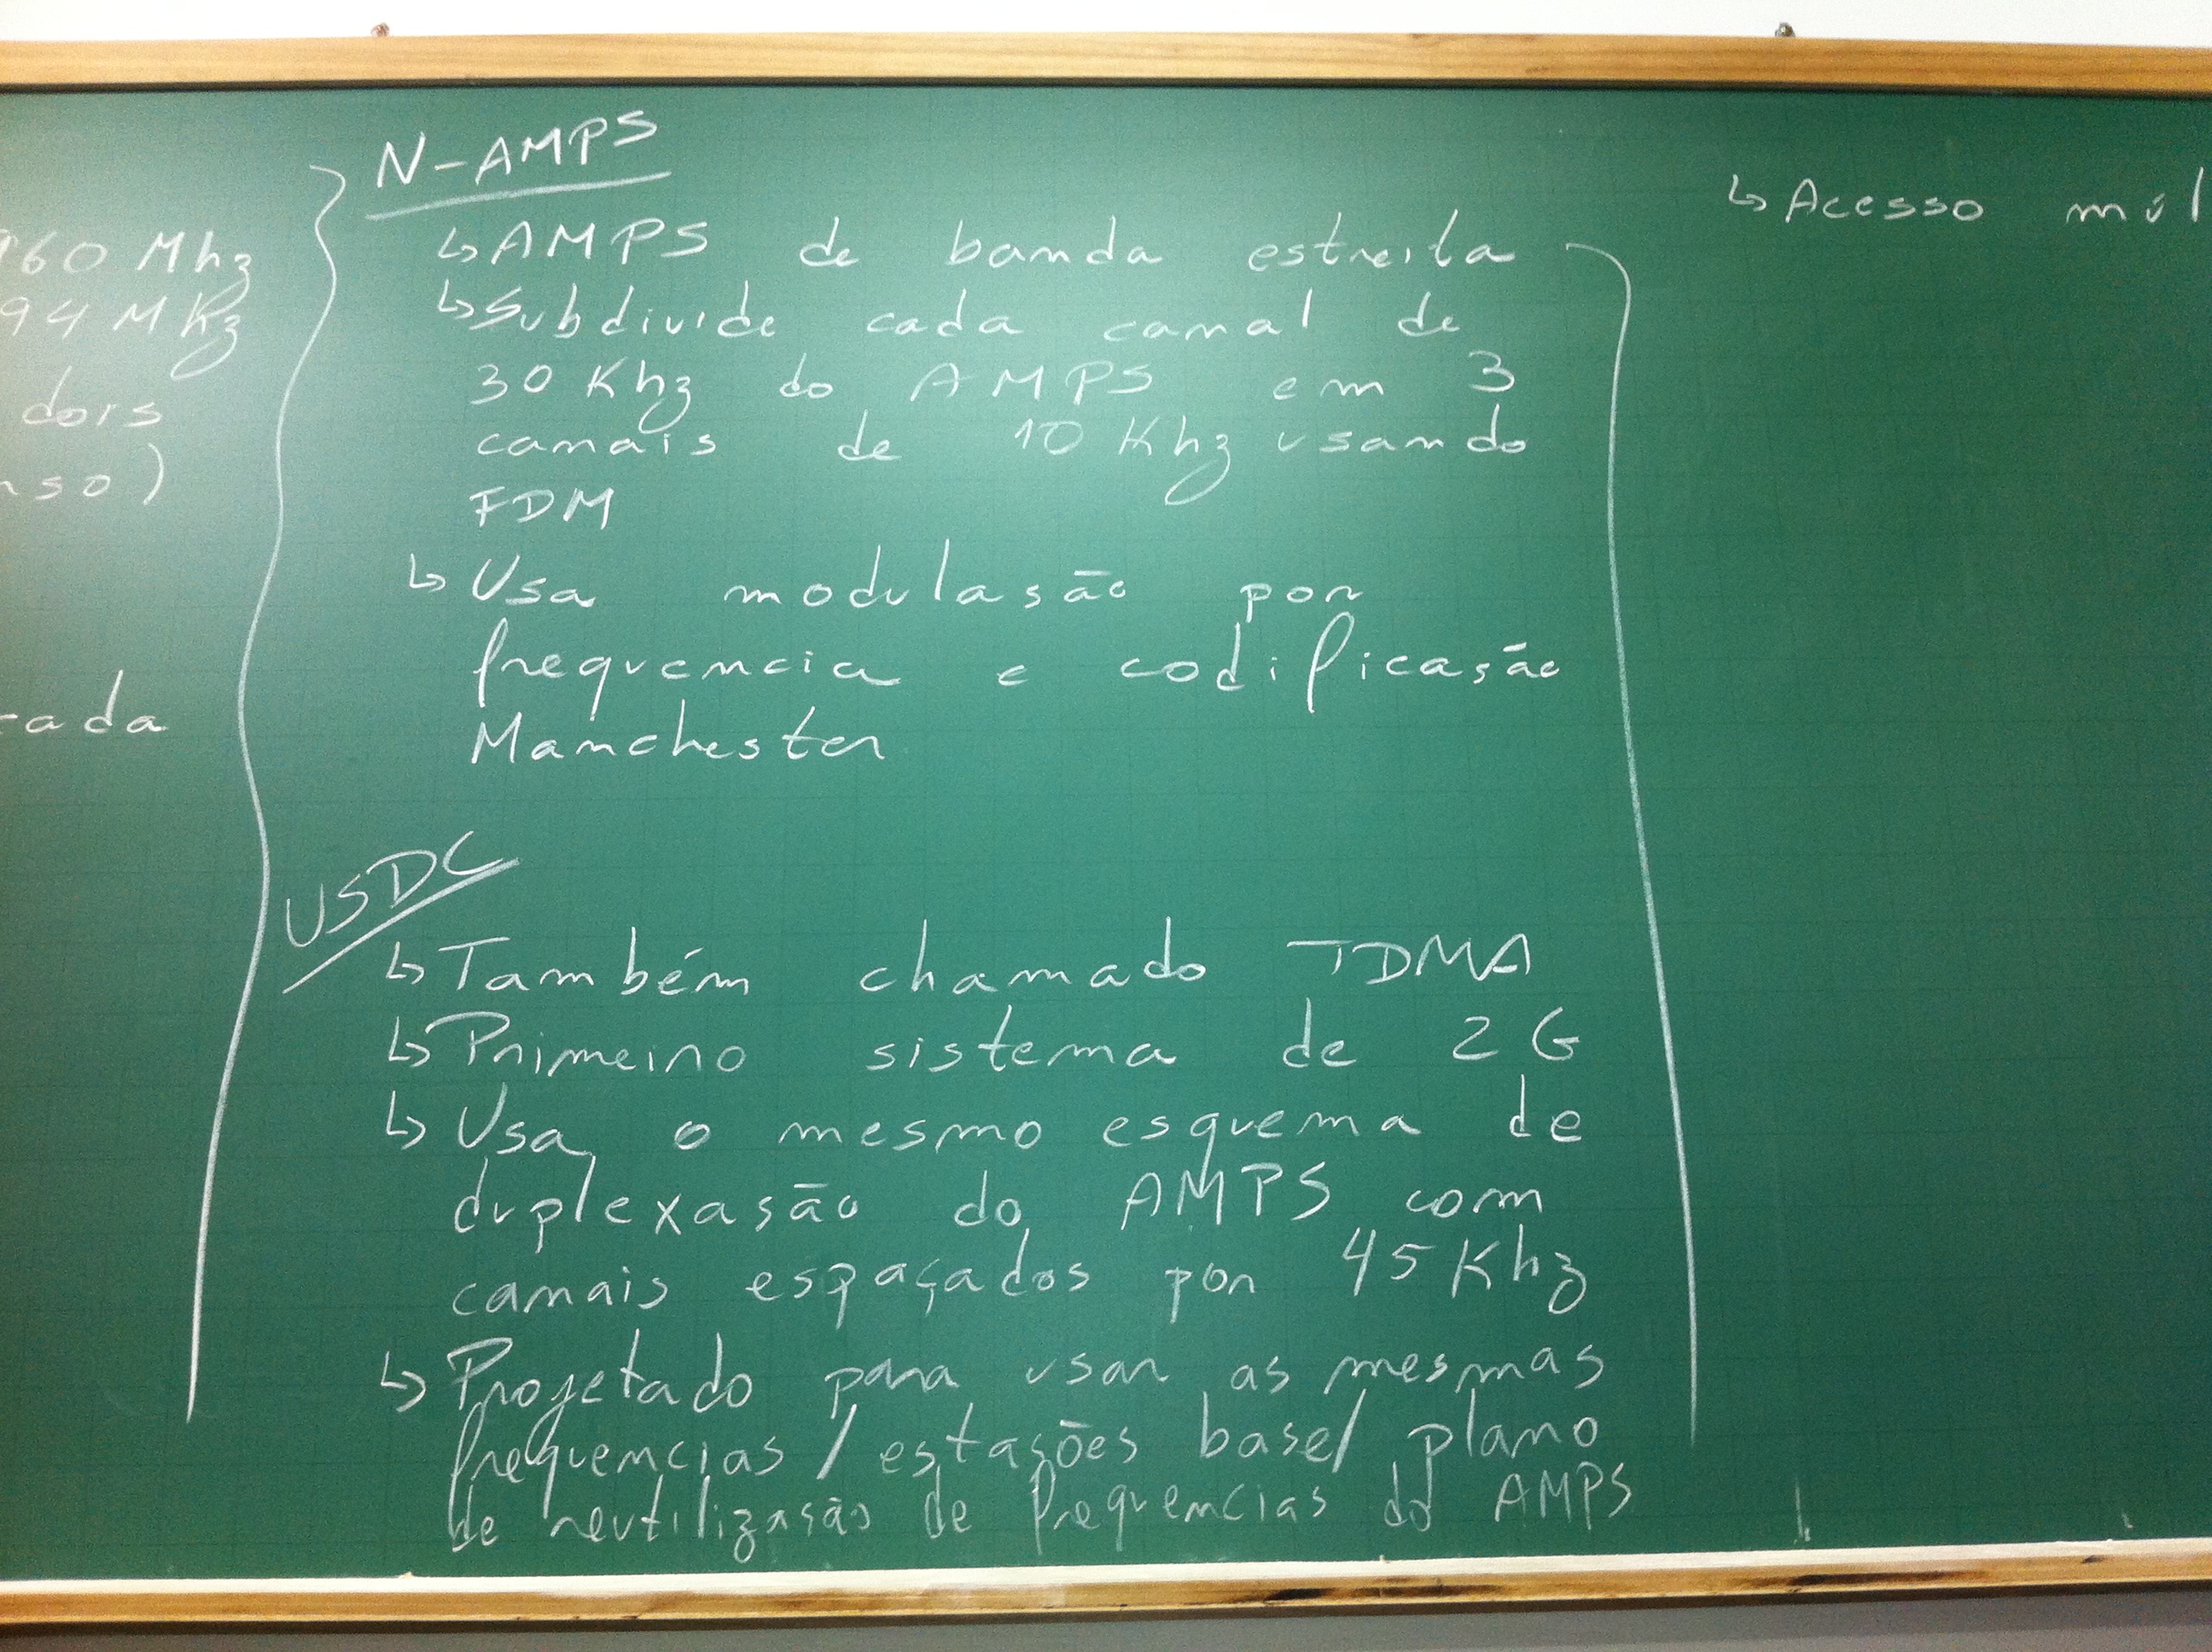 960 Mhz
94 MKz
dors
nso)
cada
N-AMPS
↳ AMPS de banda estreita
↳ Subdivide cada canal de
30 Khz do AMPS em 3
canais de 10 Khz usando
FDM
↳ Usa modulasão por
frequencia e codificasão
Manchester
USDC
↳ Também chamado TDMA
↳ Primeiro sistema de 2G
↳ Usa o mesmo esquema de
duplexasão do AMPS com
canais espaçados por 45 Khz
↳ Projetado para usar as mesmas
frequencias / estasões base / plano
de reutilizasão de frequencias do AMPS
↳ Acesso múl